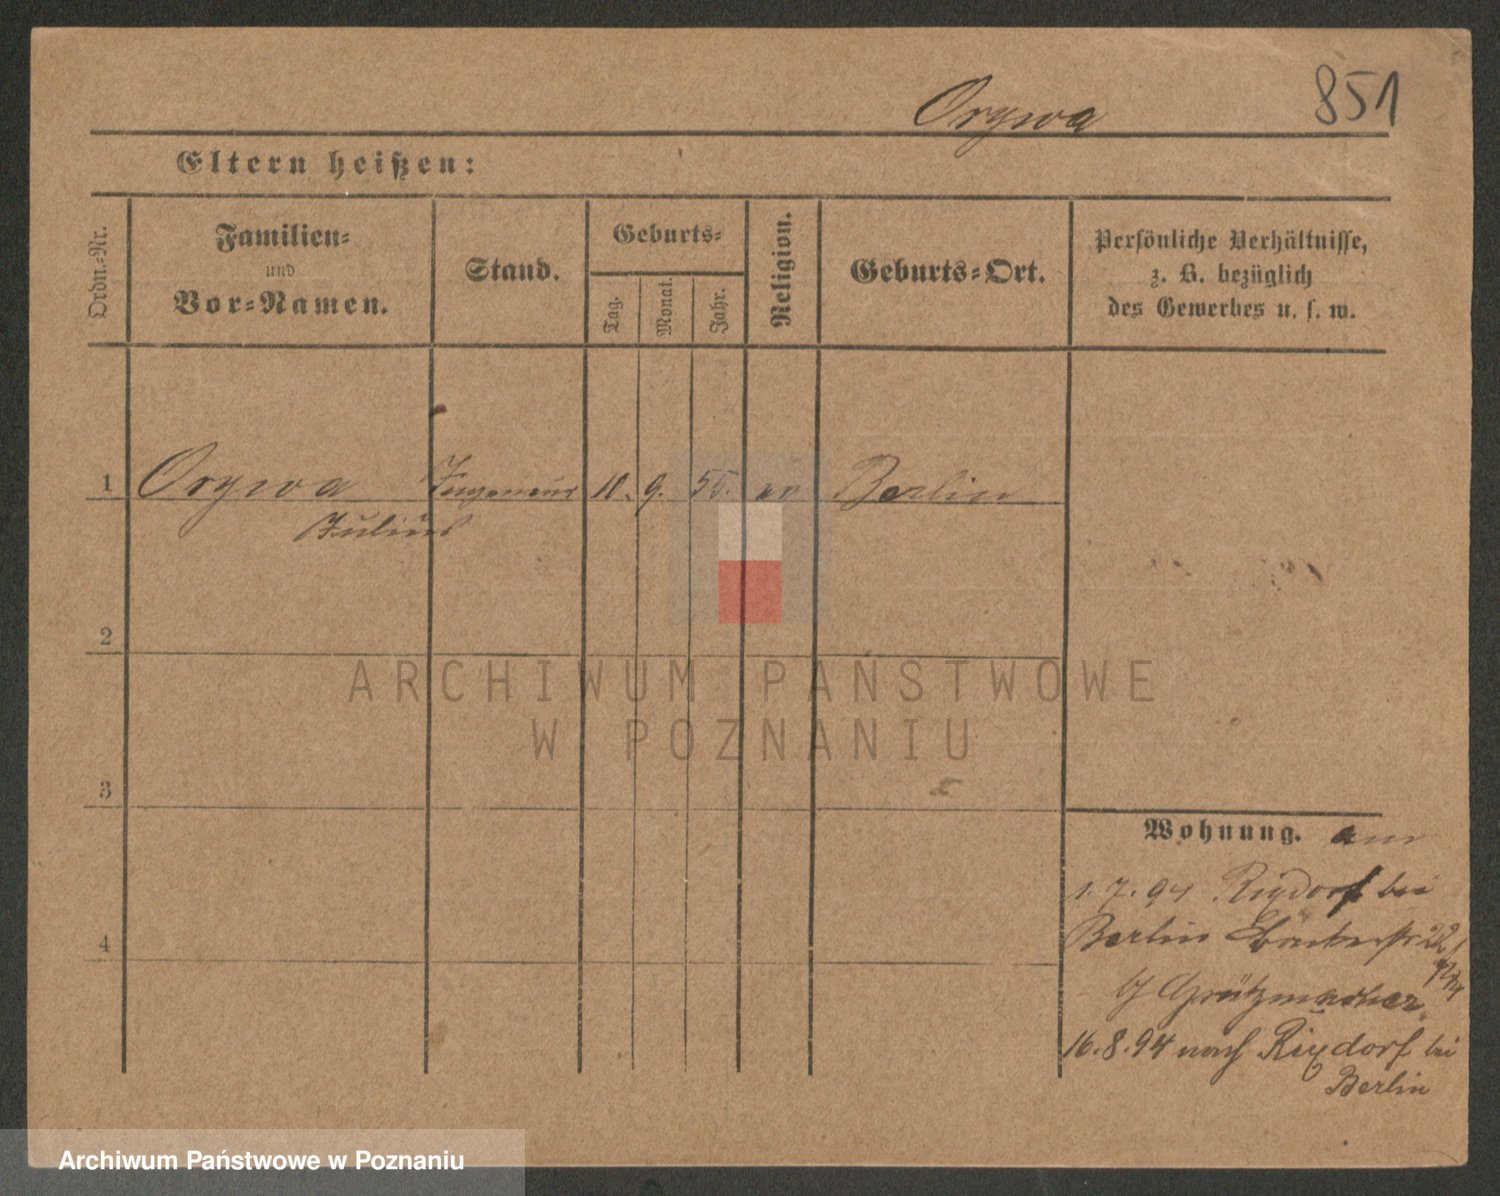 Orywa
851
Eltern heißen:
Ordn.-Nr.
Familien-
und
Vor-Namen.
Stand.
Geburts-
Tag.
Monat.
Jahr.
Religion.
Geburts-Ort.
Persönliche Verhältnisse,
z. B. bezüglich
des Gewerbes u. s. w.
1 Orywa Ingenieur 10. 9. 55. ev Berlin
Julius
2
3
4
Wohnung. am
1. 7. 94 Rixdorf bei
Berlin 22
b/ Grützmacher
16.8.94 nach Rixdorf bei
Berlin
ARCHIWUM PAŃSTWOWE
W POZNANIU
Archiwum Państwowe w Poznaniu